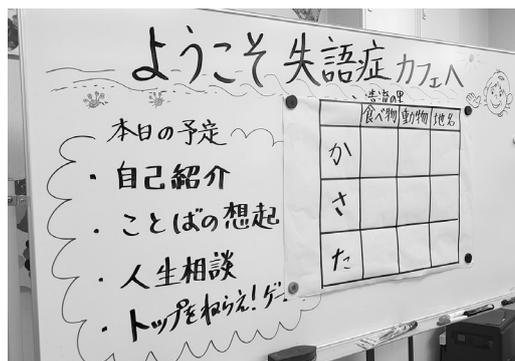 ようこそ 失語症カフェへ
本日の予定
・自己紹介
・ことばの想起
・人生相談
・トップをねらえ!ゲー
食べ物 動物 地名
か
さ
た